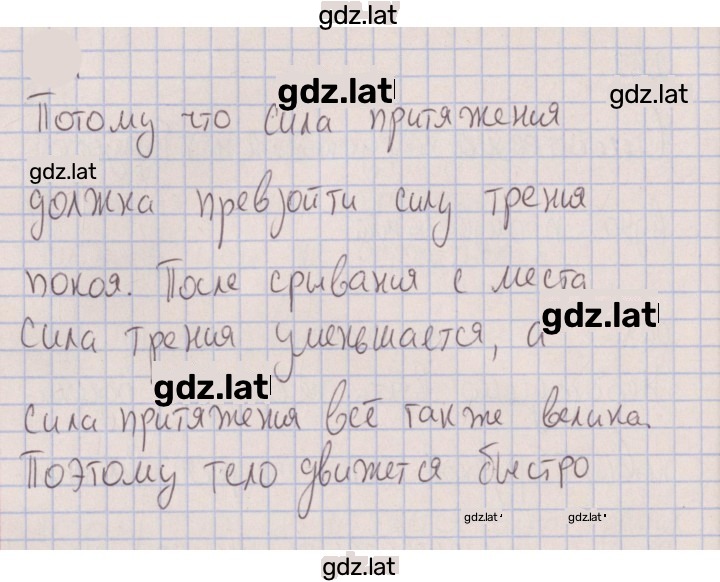 gdz.lat
gdz.lat
gdz.lat
Потому что сила притяжения
gdz.lat
должна превзойти силу трения
покоя. После срывания с места
сила трения уменьшается, а
gdz.lat
gdz.lat
сила притяжения всё также велика.
Поэтому тело движется быстро
gdz.lat
gdz.lat
gdz.lat